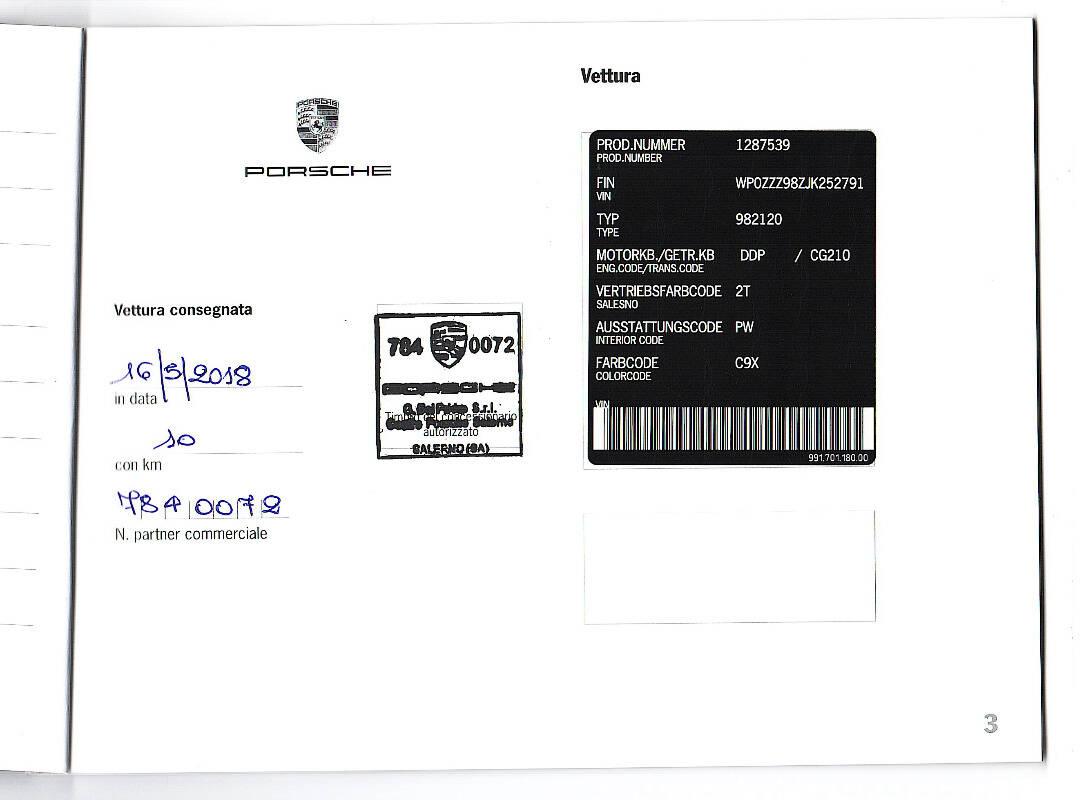 PORSCHE
PORSCHE
Vettura consegnata
16/5/2018
in data
10
con km
784 0072
N. partner commerciale
784 0072
PORSCHE
S.r.l.
Timbro del concessionario
autorizzato
SALERNO (SA)
Vettura
PROD.NUMMER 1287539
PROD.NUMBER
FIN WP0ZZZ98ZJK252791
VIN
TYP 982120
TYPE
MOTORKB./GETR.KB DDP / CG210
ENG.CODE/TRANS.CODE
VERTRIEBSFARBCODE 2T
SALESNO
AUSSTATTUNGSCODE PW
INTERIOR CODE
FARBCODE C9X
COLORCODE
VIN
991.701.180.00
3